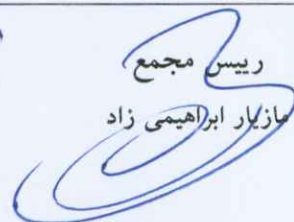 رییس مجمع
مازیار ابراهیمی زاد